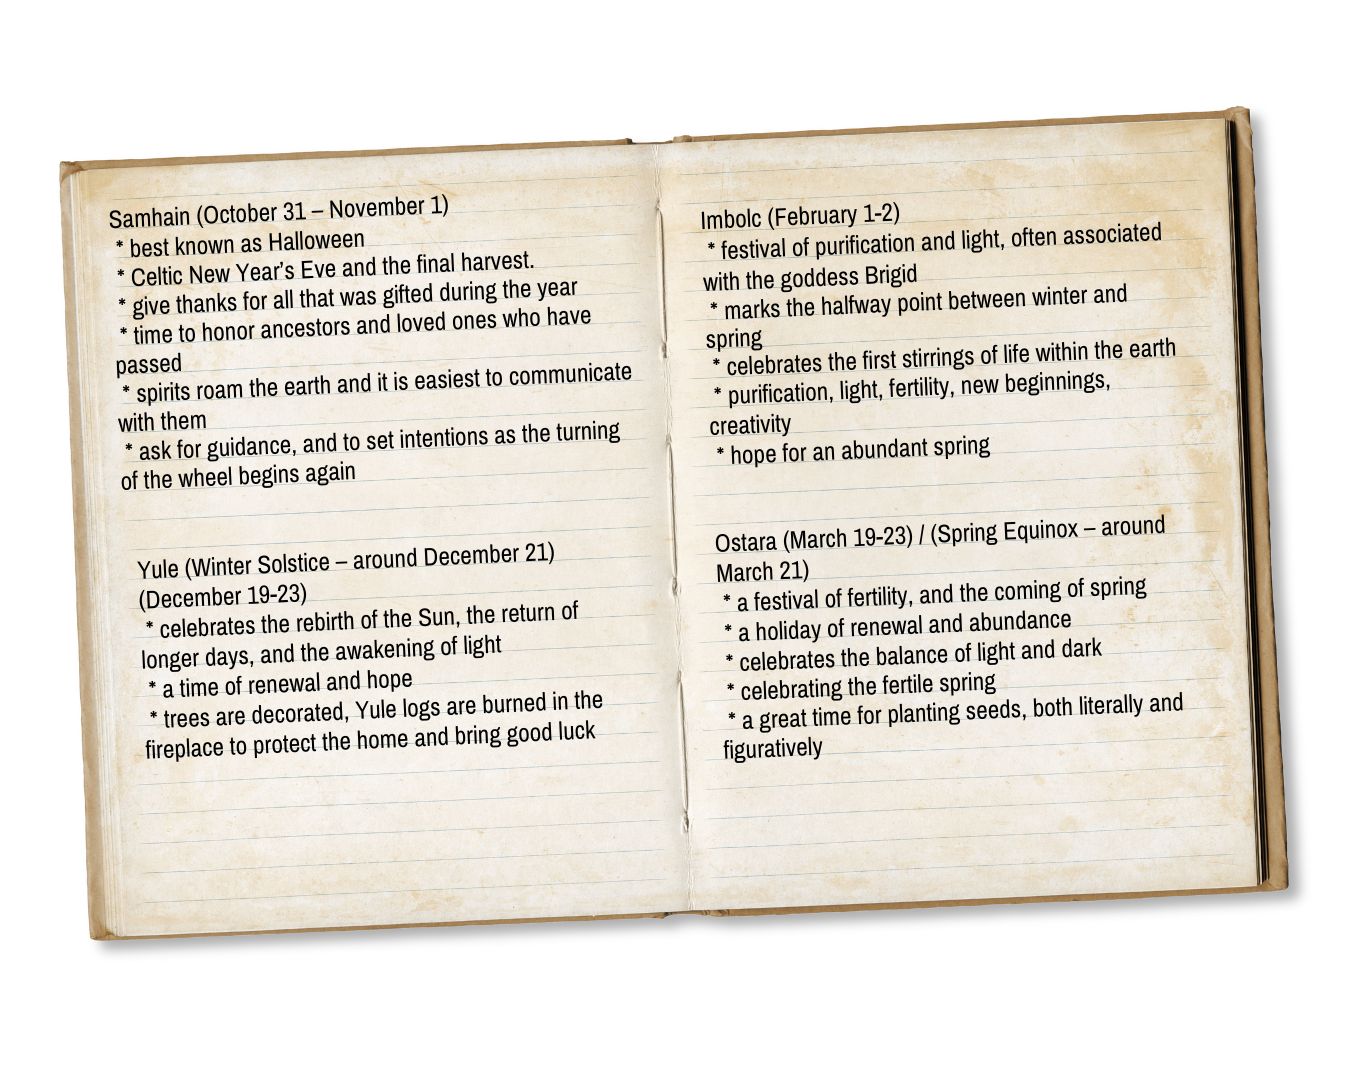 Samhain (October 31 – November 1)
* best known as Halloween
* Celtic New Year's Eve and the final harvest.
* give thanks for all that was gifted during the year
* time to honor ancestors and loved ones who have
passed
* spirits roam the earth and it is easiest to communicate
with them
* ask for guidance, and to set intentions as the turning
of the wheel begins again
Yule (Winter Solstice – around December 21)
(December 19-23)
* celebrates the rebirth of the Sun, the return of
longer days, and the awakening of light
* a time of renewal and hope
* trees are decorated, Yule logs are burned in the
fireplace to protect the home and bring good luck
Imbolc (February 1-2)
* festival of purification and light, often associated
with the goddess Brigid
* marks the halfway point between winter and
spring
* celebrates the first stirrings of life within the earth
* purification, light, fertility, new beginnings,
creativity
* hope for an abundant spring
Ostara (March 19-23) / (Spring Equinox – around
March 21)
* a festival of fertility, and the coming of spring
* a holiday of renewal and abundance
* celebrates the balance of light and dark
* celebrating the fertile spring
* a great time for planting seeds, both literally and
figuratively